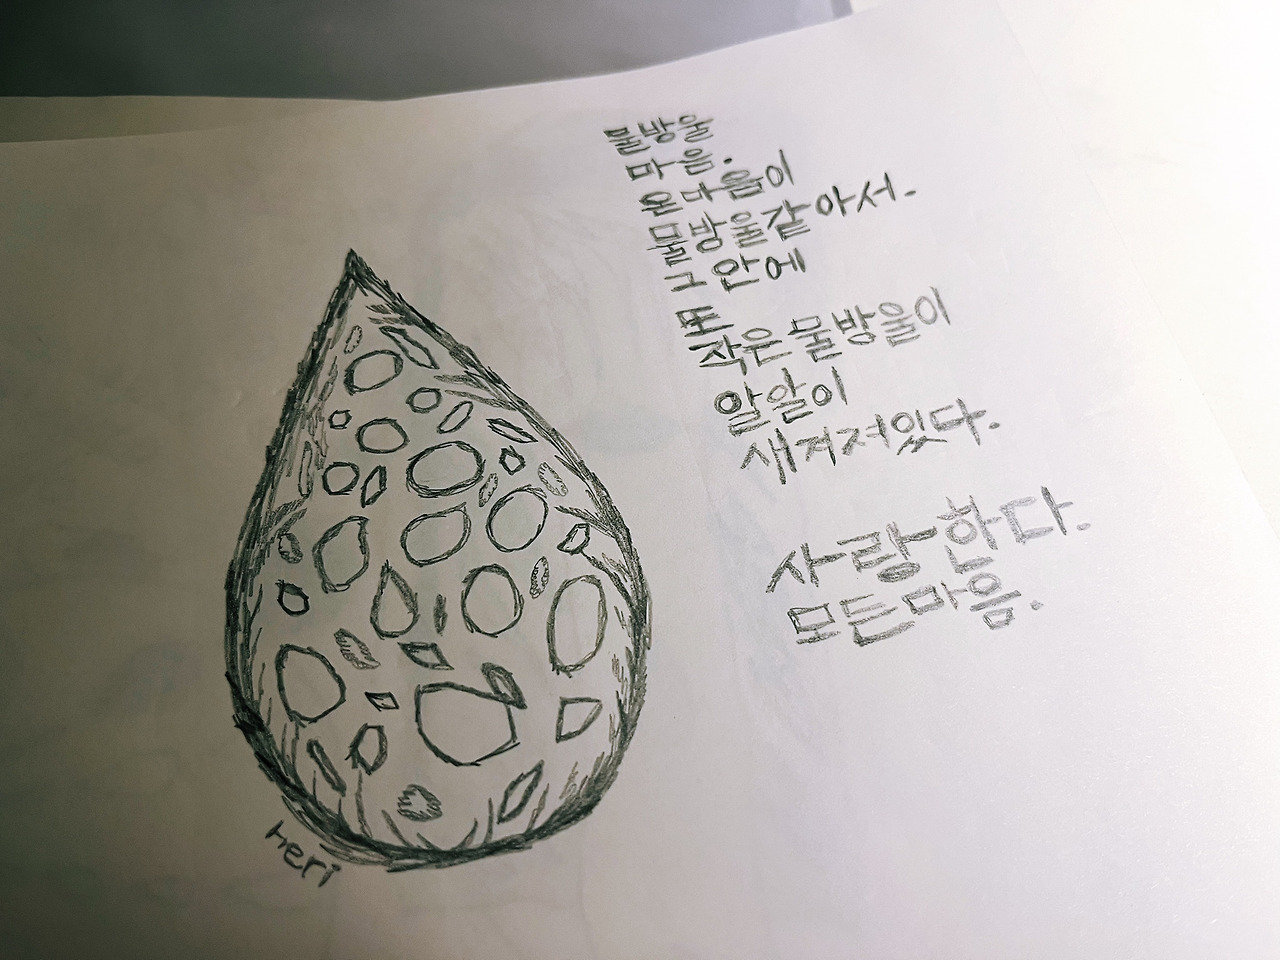 물방울
마음.
온마음이
물방울같아서.
그안에
또
작은물방울이
알알이
새겨져있다.
사랑한다.
모든마음.
heri